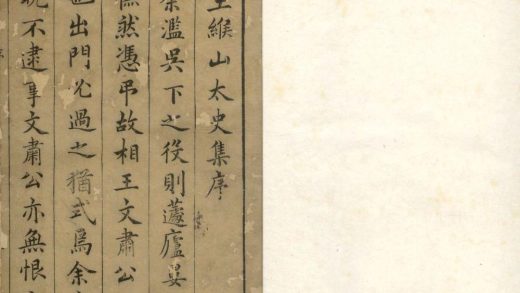 王緱山太史集序
余濫吳下之役則蘧廬㝠
憮然憑弔故相王文肅公
也出門必過之猶式焉余
晚不逮事文肅公亦無恨